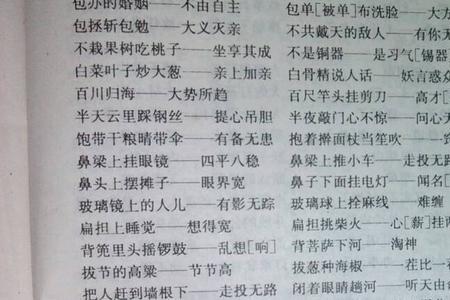 包办的婚姻——不由自主
包拯斩包勉——大义灭亲
不栽果树吃桃子——坐享其成
白菜叶子炒大葱——亲上加亲
百川归海——大势所趋
半天云里踩钢丝——提心吊胆
饱带干粮晴带伞——有备无患
鼻梁上挂眼镜——四平八稳
鼻头上摆摊子——眼界宽
玻璃镜上的人儿——有影无踪
扁担上睡觉——想得宽
背篼里头摇锣鼓——乱想[响]
拔节的高粱——节节高
把人赶到墙根下——走投无路
包单[被单]布洗脸——大方
不共戴天的敌人——有你无
不是铜器——是习气[锡器
白骨精说人话——妖言惑众
百尺竿头挂剪刀——高才[
半夜敲门心不惊——问心无
抱着擀面杖当笙吹——窍
鼻梁上推小车——走投无路
鼻子下面挂电灯——闻名[
玻璃球上拴麻线——难缠
扁担挑柴火——心[薪]挂两
背菩萨下河——淘神
拔葱种海椒——茬比一
闭着眼睛趟河——听天由